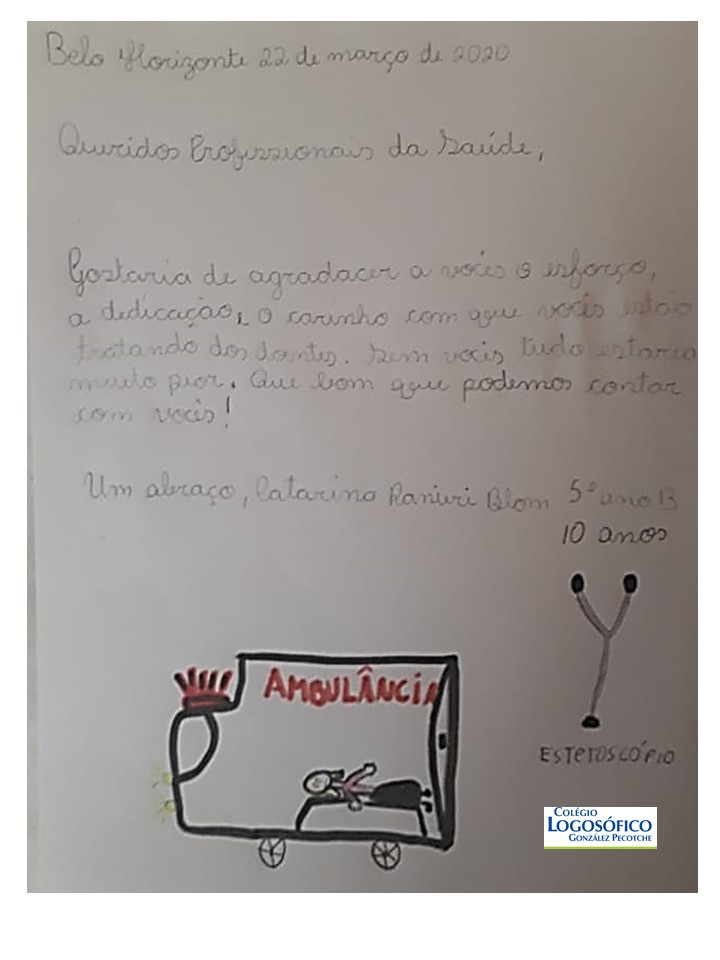 Belo Horizonte 22 de março de 2020
Queridos Profissionais da Saúde,
Gostaria de agradacer a vocês o esforço,
a dedicação, o carinho com que vocês estão
tratando dos dontes. Sem vocês tudo estaria
muito pior. Que bom que podemos contar
com vocês!
Um abraço, Catarina Ranieri Blom 5º ano B
10 anos
AMBULÂNCIA
ESTETOSCÓPIO
COLÉGIO
LOGOSÓFICO
GONZÁLEZ PECOTCHE